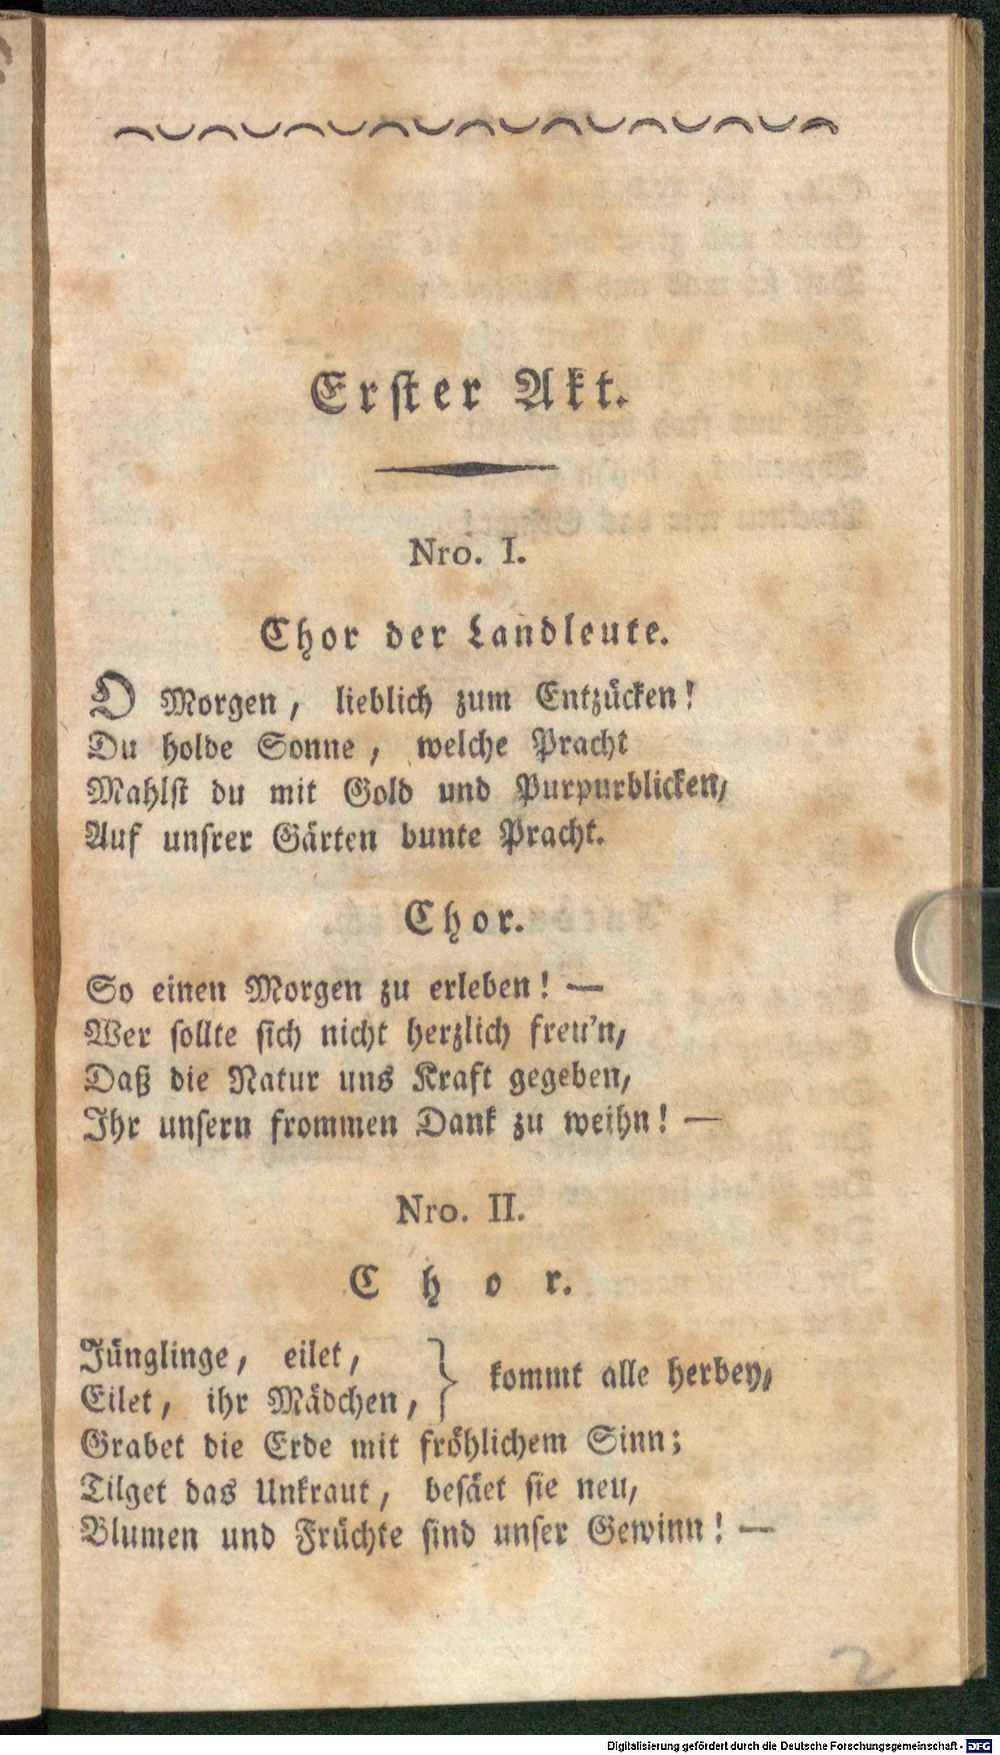 Erster Akt.
Nro. I.
Chor der Landleute.
O Morgen, lieblich zum Entzücken!
Du holde Sonne, welche Pracht
Mahlst du mit Gold und Purpurblicken,
Auf unsrer Gärten bunte Pracht.
Chor.
So einen Morgen zu erleben! —
Wer sollte sich nicht herzlich freu'n,
Daß die Natur uns Kraft gegeben,
Ihr unsern frommen Dank zu weihn! —
Nro. II.
Chor.
Jünglinge, eilet,
Eilet, ihr Mädchen, } kommt alle herbey,
Grabet die Erde mit fröhlichem Sinn;
Tilget das Unkraut, besäet sie neu,
Blumen und Früchte sind unser Gewinn! —
2
Digitalisierung gefördert durch die Deutsche Forschungsgemeinschaft - DFG